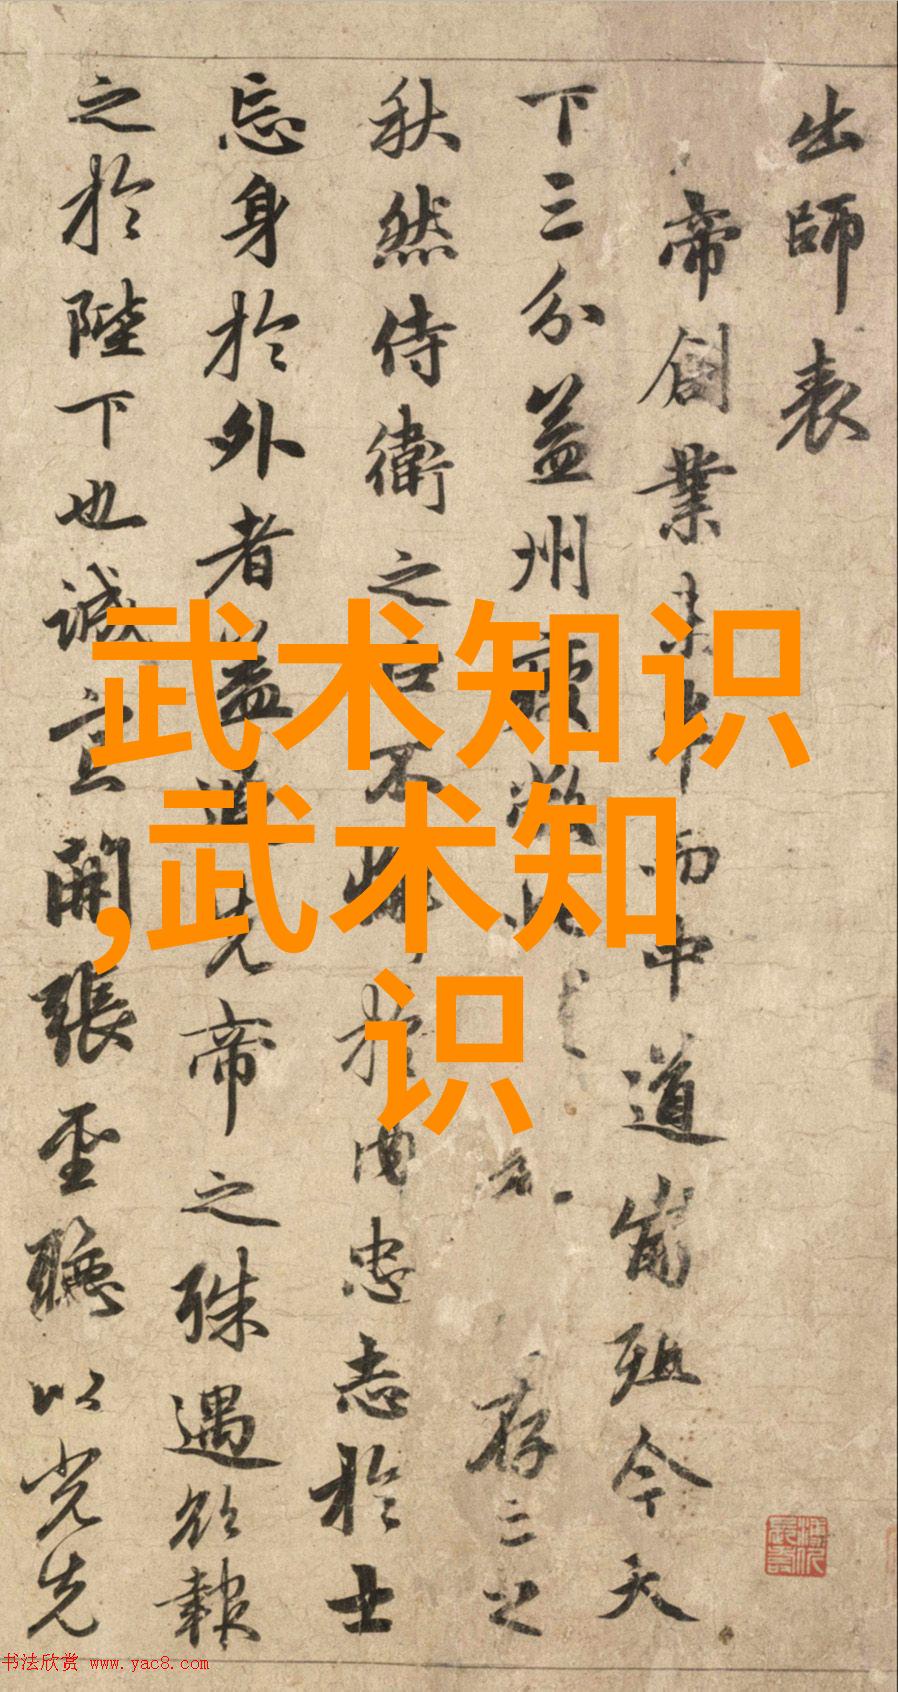 出師表
帝創業未半而中道崩殂今天
下三分益州疲敝此存亡之
秋然侍衛之臣不懈於内忠志於士
忘身於外者蓋追先帝之殊遇欲報
之於陛下也誠宜開張聖聽以光先
武术知识
,武术知
识
书法欣赏 www.yac8.com